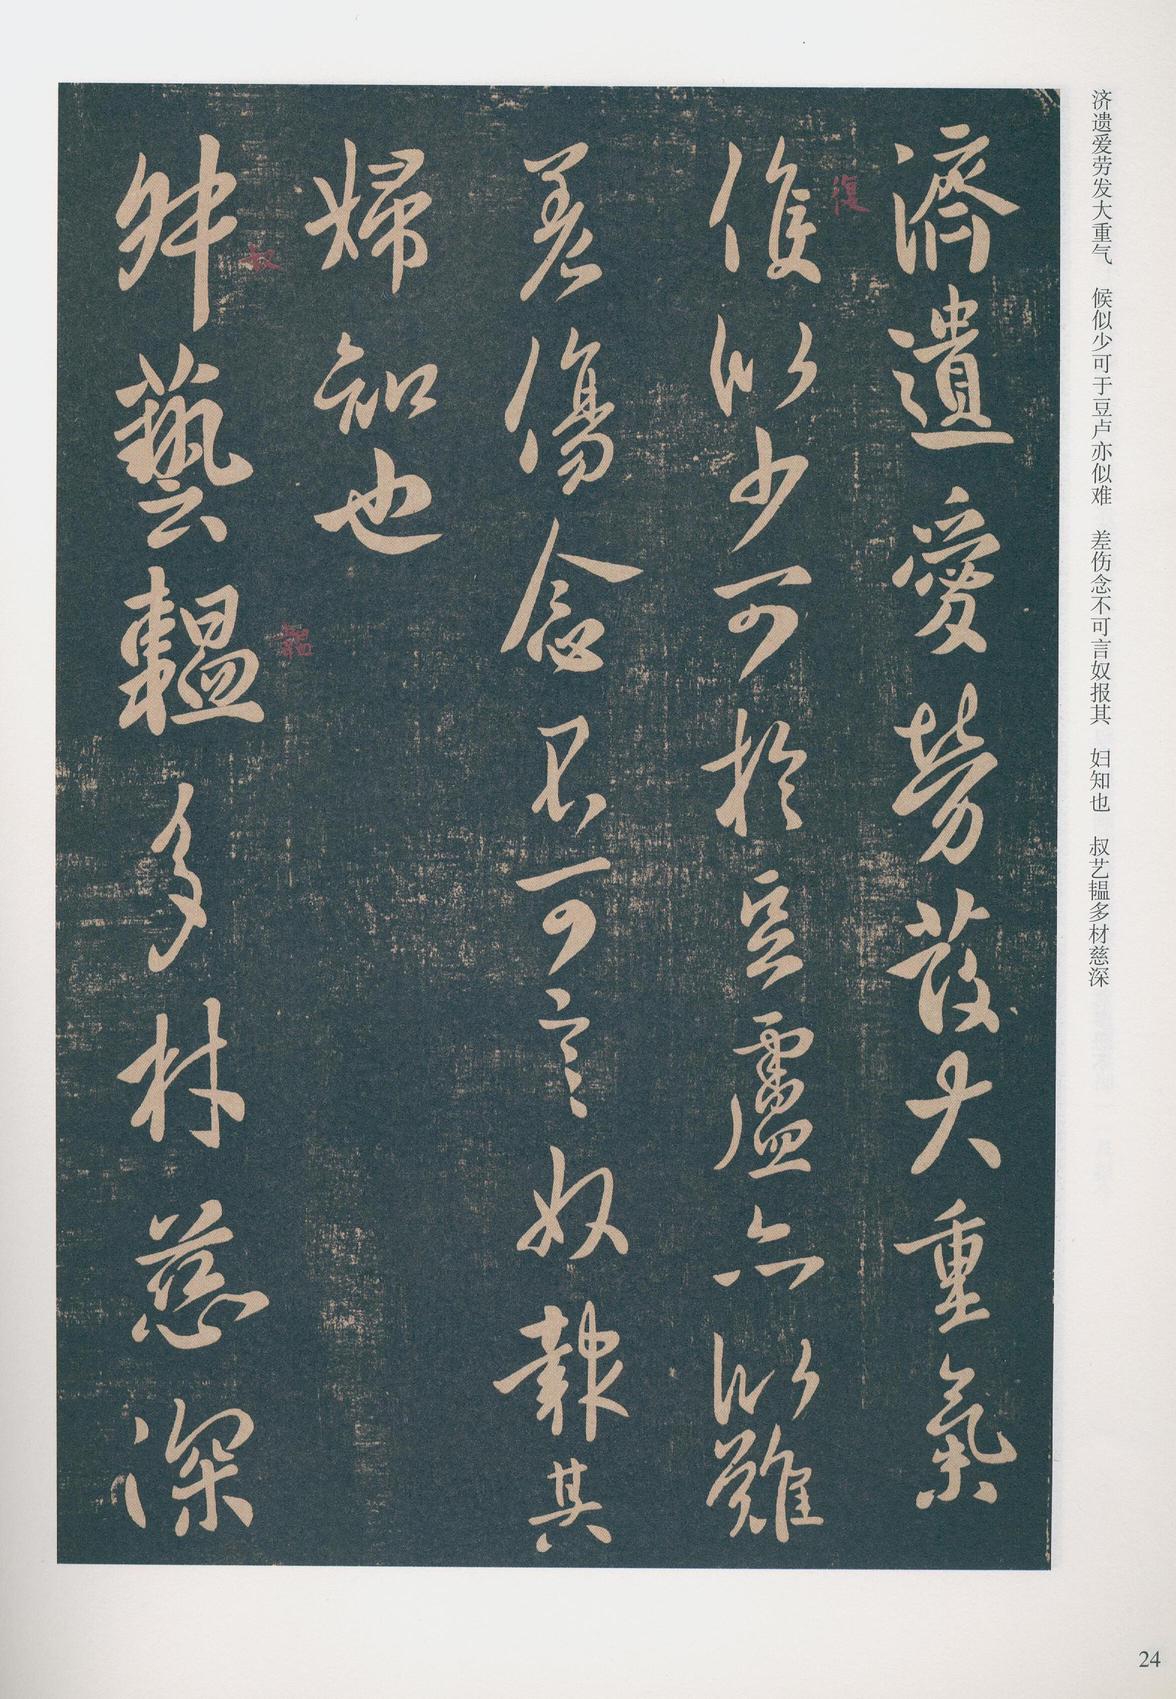 济遗爱劳发大重气　候似少可于豆卢亦似难　差伤念不可言奴报其　妇知也　叔艺韫多材慈深
濟遺愛勞發大重氣
候似少可於豆盧亦似難
復
差傷念不可言奴報其
婦知也
叔藝韞多材慈深
叔
韞
24